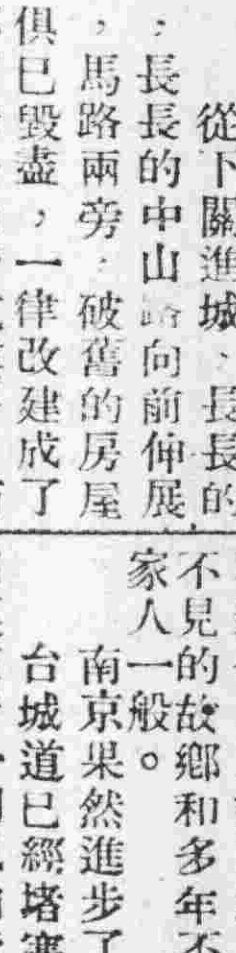 從下關進城、長長的
，長長的中山路向前伸展
，馬路兩旁，破舊的房屋
俱已毀盡，一律改建成了
不見的故鄉和多年不
家人一般。
南京果然進步了
台城道已經堵塞